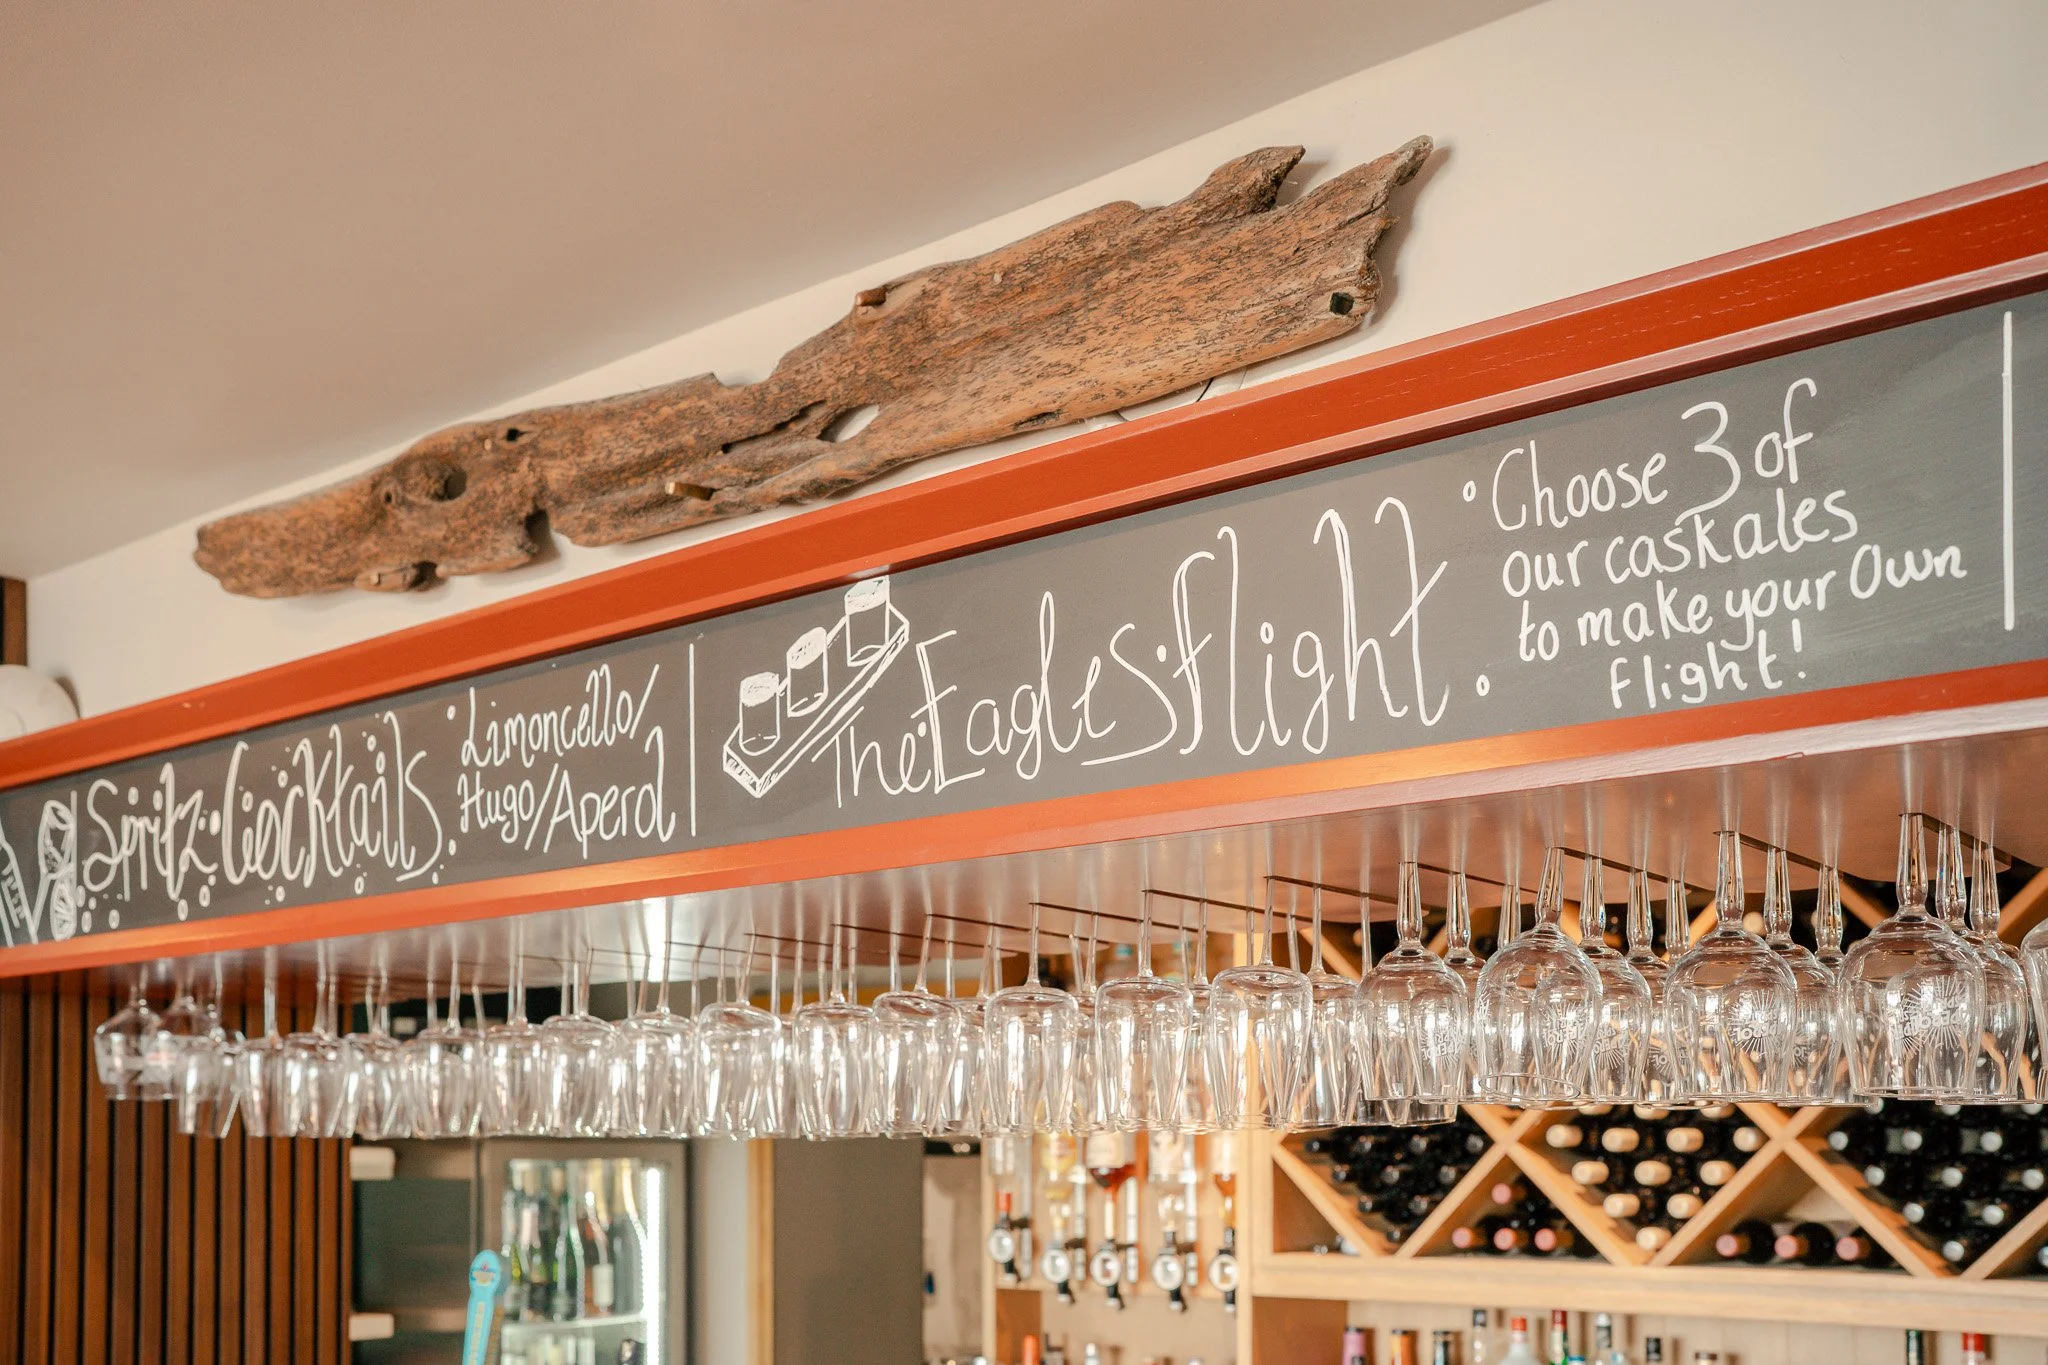 Spritz Cocktails
Limoncello/
Hugo/Aperol
The Eagles flight
Choose 3 of
our caskales
to make your Own
flight!